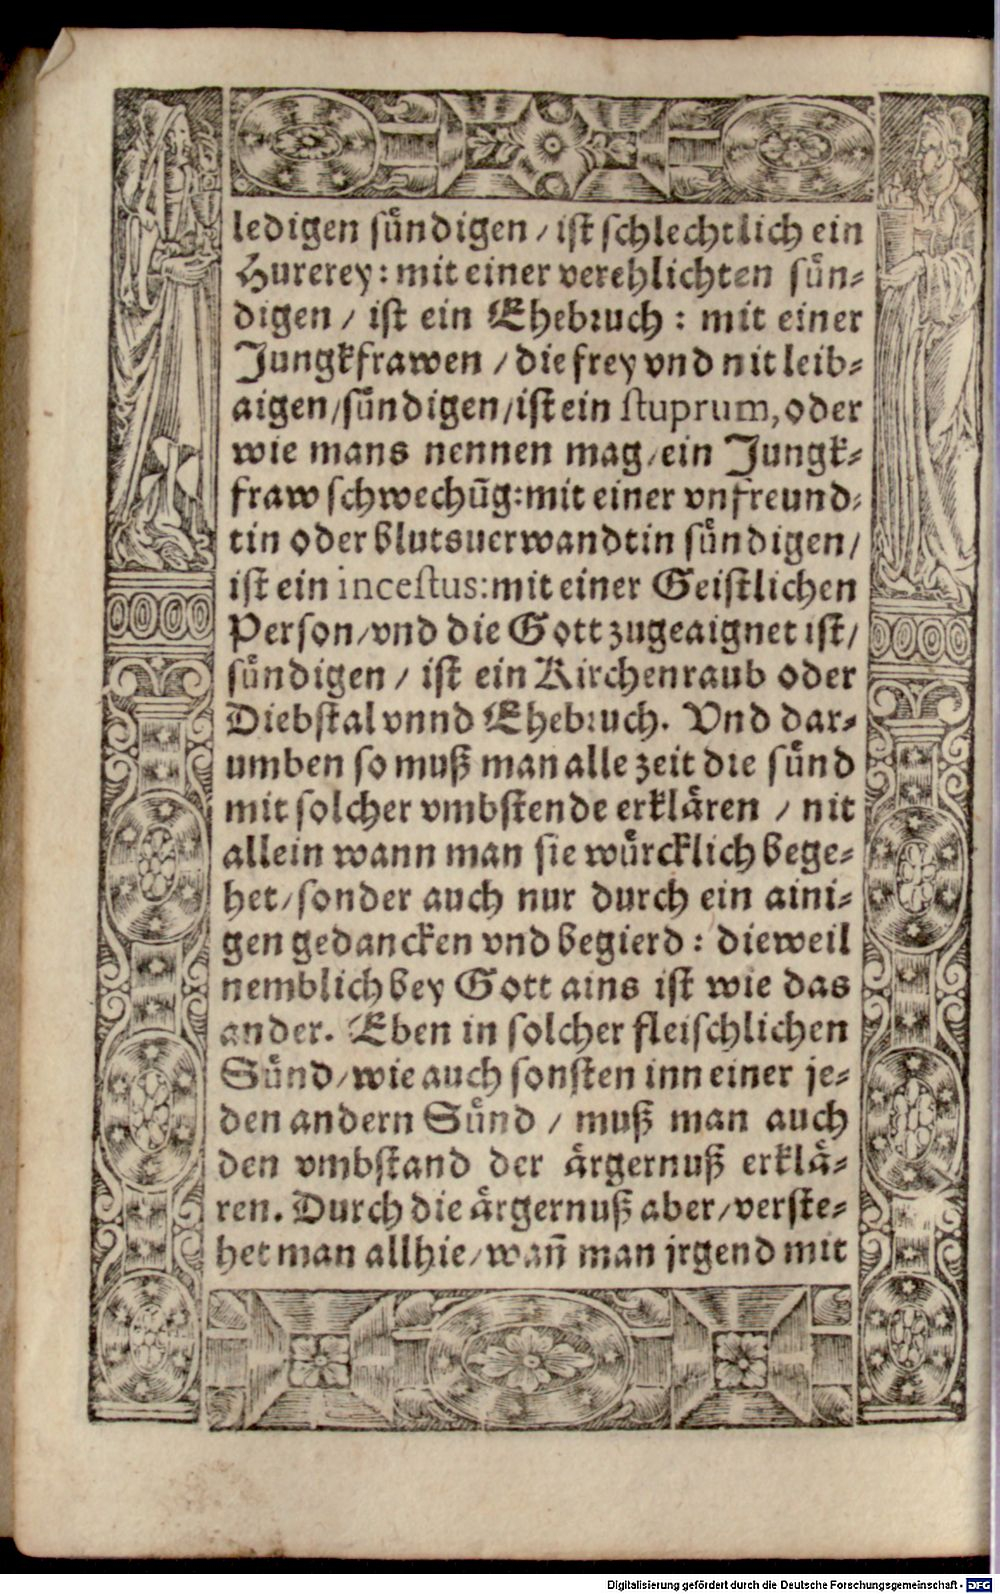 ledigen sündigen / ist schlechtlich ein
Hurerey: mit einer verehlichten sün-
digen / ist ein Ehebruch: mit einer
Jungkfrawen / die frey vnd nit leib-
aigen / sündigen / ist ein stuprum, oder
wie mans nennen mag / ein Jungk-
fraw schwechũg: mit einer vnfreund-
tin oder blutsuerwandtin sündigen /
ist ein incestus: mit einer Geistlichen
Person / vnd die Gott zugeaignet ist /
sündigen / ist ein Kirchenraub oder
Diebstal vnnd Ehebruch. Vnd dar-
umben so muß man alle zeit die sünd
mit solcher vmbstende erklären / nit
allein wann man sie würcklich bege-
het / sonder auch nur durch ein aini-
gen gedancken vnd begierd: dieweil
nemblich bey Gott ains ist wie das
ander. Eben in solcher fleischlichen
Sünd / wie auch sonsten inn einer je-
den andern Sünd / muß man auch
den vmbstand der ärgernuß erklä-
ren. Durch die ärgernuß aber / verste-
het man allhie / wañ man jrgend mit
Digitalisierung gefördert durch die Deutsche Forschungsgemeinschaft - DFG